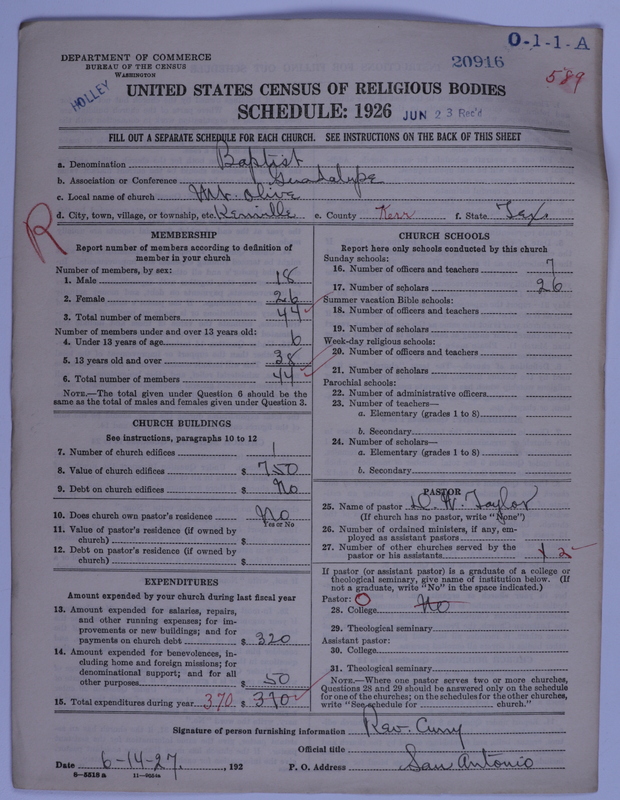 O-1-1-A
DEPARTMENT OF COMMERCE
BUREAU OF THE CENSUS
WASHINGTON
20916
589
HOLLEY
UNITED STATES CENSUS OF RELIGIOUS BODIES
SCHEDULE: 1926 JUN 23 Rec'd
FILL OUT A SEPARATE SCHEDULE FOR EACH CHURCH. SEE INSTRUCTIONS ON THE BACK OF THIS SHEET
a. Denomination Baptist
b. Association or Conference Guadalupe
c. Local name of church Mt. Olive
d. City, town, village, or township, etc. Kerrville e. County Kerr f. State Tex
R
MEMBERSHIP
Report number of members according to definition of
member in your church
Number of members, by sex:
1. Male 18
2. Female 26
3. Total number of members 44
Number of members under and over 13 years old:
4. Under 13 years of age 6
5. 13 years old and over 38
6. Total number of members 44
NOTE.—The total given under Question 6 should be
same as the total of males and females given under Question 3.
CHURCH BUILDINGS
See instructions, paragraphs 10 to 12
7. Number of church edifices 1
8. Value of church edifices $ 750
9. Debt on church edifices $ No
10. Does church own pastor's residence No
Yes or No
11. Value of pastor's residence (if owned by
church) $
12. Debt on pastor's residence (if owned by
church) $
EXPENDITURES
Amount expended by your church during last fiscal year
13. Amount expended for salaries, repairs,
and other running expenses; for im-
provements or new buildings; and for
payments on church debt $ 320
14. Amount expended for benevolences, in-
cluding home and foreign missions; for
denominational support; and for all
other purposes $ 50
15. Total expenditures during year 370 $ 370
CHURCH SCHOOLS
Report here only schools conducted by this church
Sunday schools:
16. Number of officers and teachers 7
17. Number of scholars 26
Summer vacation Bible schools:
18. Number of officers and teachers
19. Number of scholars
Week-day religious schools:
20. Number of officers and teachers
21. Number of scholars
Parochial schools:
22. Number of administrative officers
23. Number of teachers—
a. Elementary (grades 1 to 8)
b. Secondary
24. Number of scholars—
a. Elementary (grades 1 to 8)
b. Secondary
PASTOR
25. Name of pastor D. W. Taylor
(If church has no pastor, write "None")
26. Number of ordained ministers, if any, em-
ployed as assistant pastors
27. Number of other churches served by the
pastor or his assistants 2
If pastor (or assistant pastor) is a graduate of a college or
theological seminary, give name of institution below. (If
not a graduate, write "No" in the space indicated.)
Pastor: O
28. College No
29. Theological seminary
Assistant pastor:
30. College
31. Theological seminary
NOTE.—Where one pastor serves two or more churches,
Questions 28 and 29 should be answered only on the schedule
for one of the churches; on the schedules for the other churches,
write "See schedule for church."
Signature of person furnishing information Rev. Curry
Official title
Date 6-14-27, 192 P. O. Address San Antonio
8-5518 a